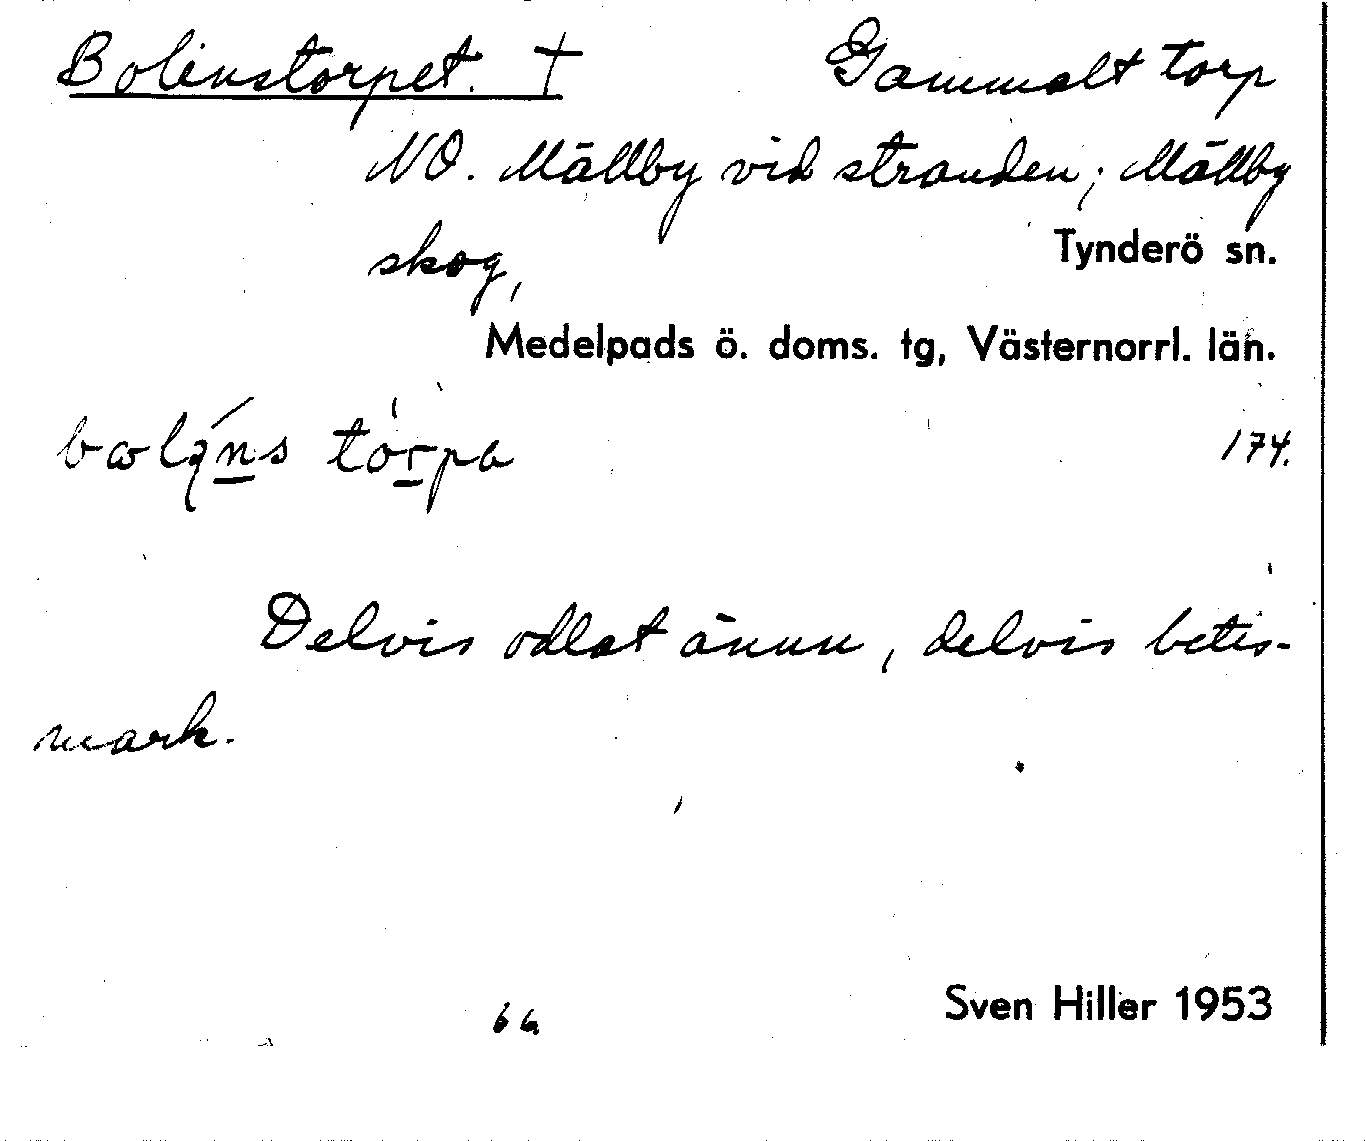 Bolinstorpet. † Gammalt torp
NO. Mällby vid stranden; Mällby
skog,
Tynderö sn.
Medelpads ö. doms. tg, Västernorrl. län.
174.
Delvis odlat ännu, delvis betes-
mark.
Sven Hiller 1953